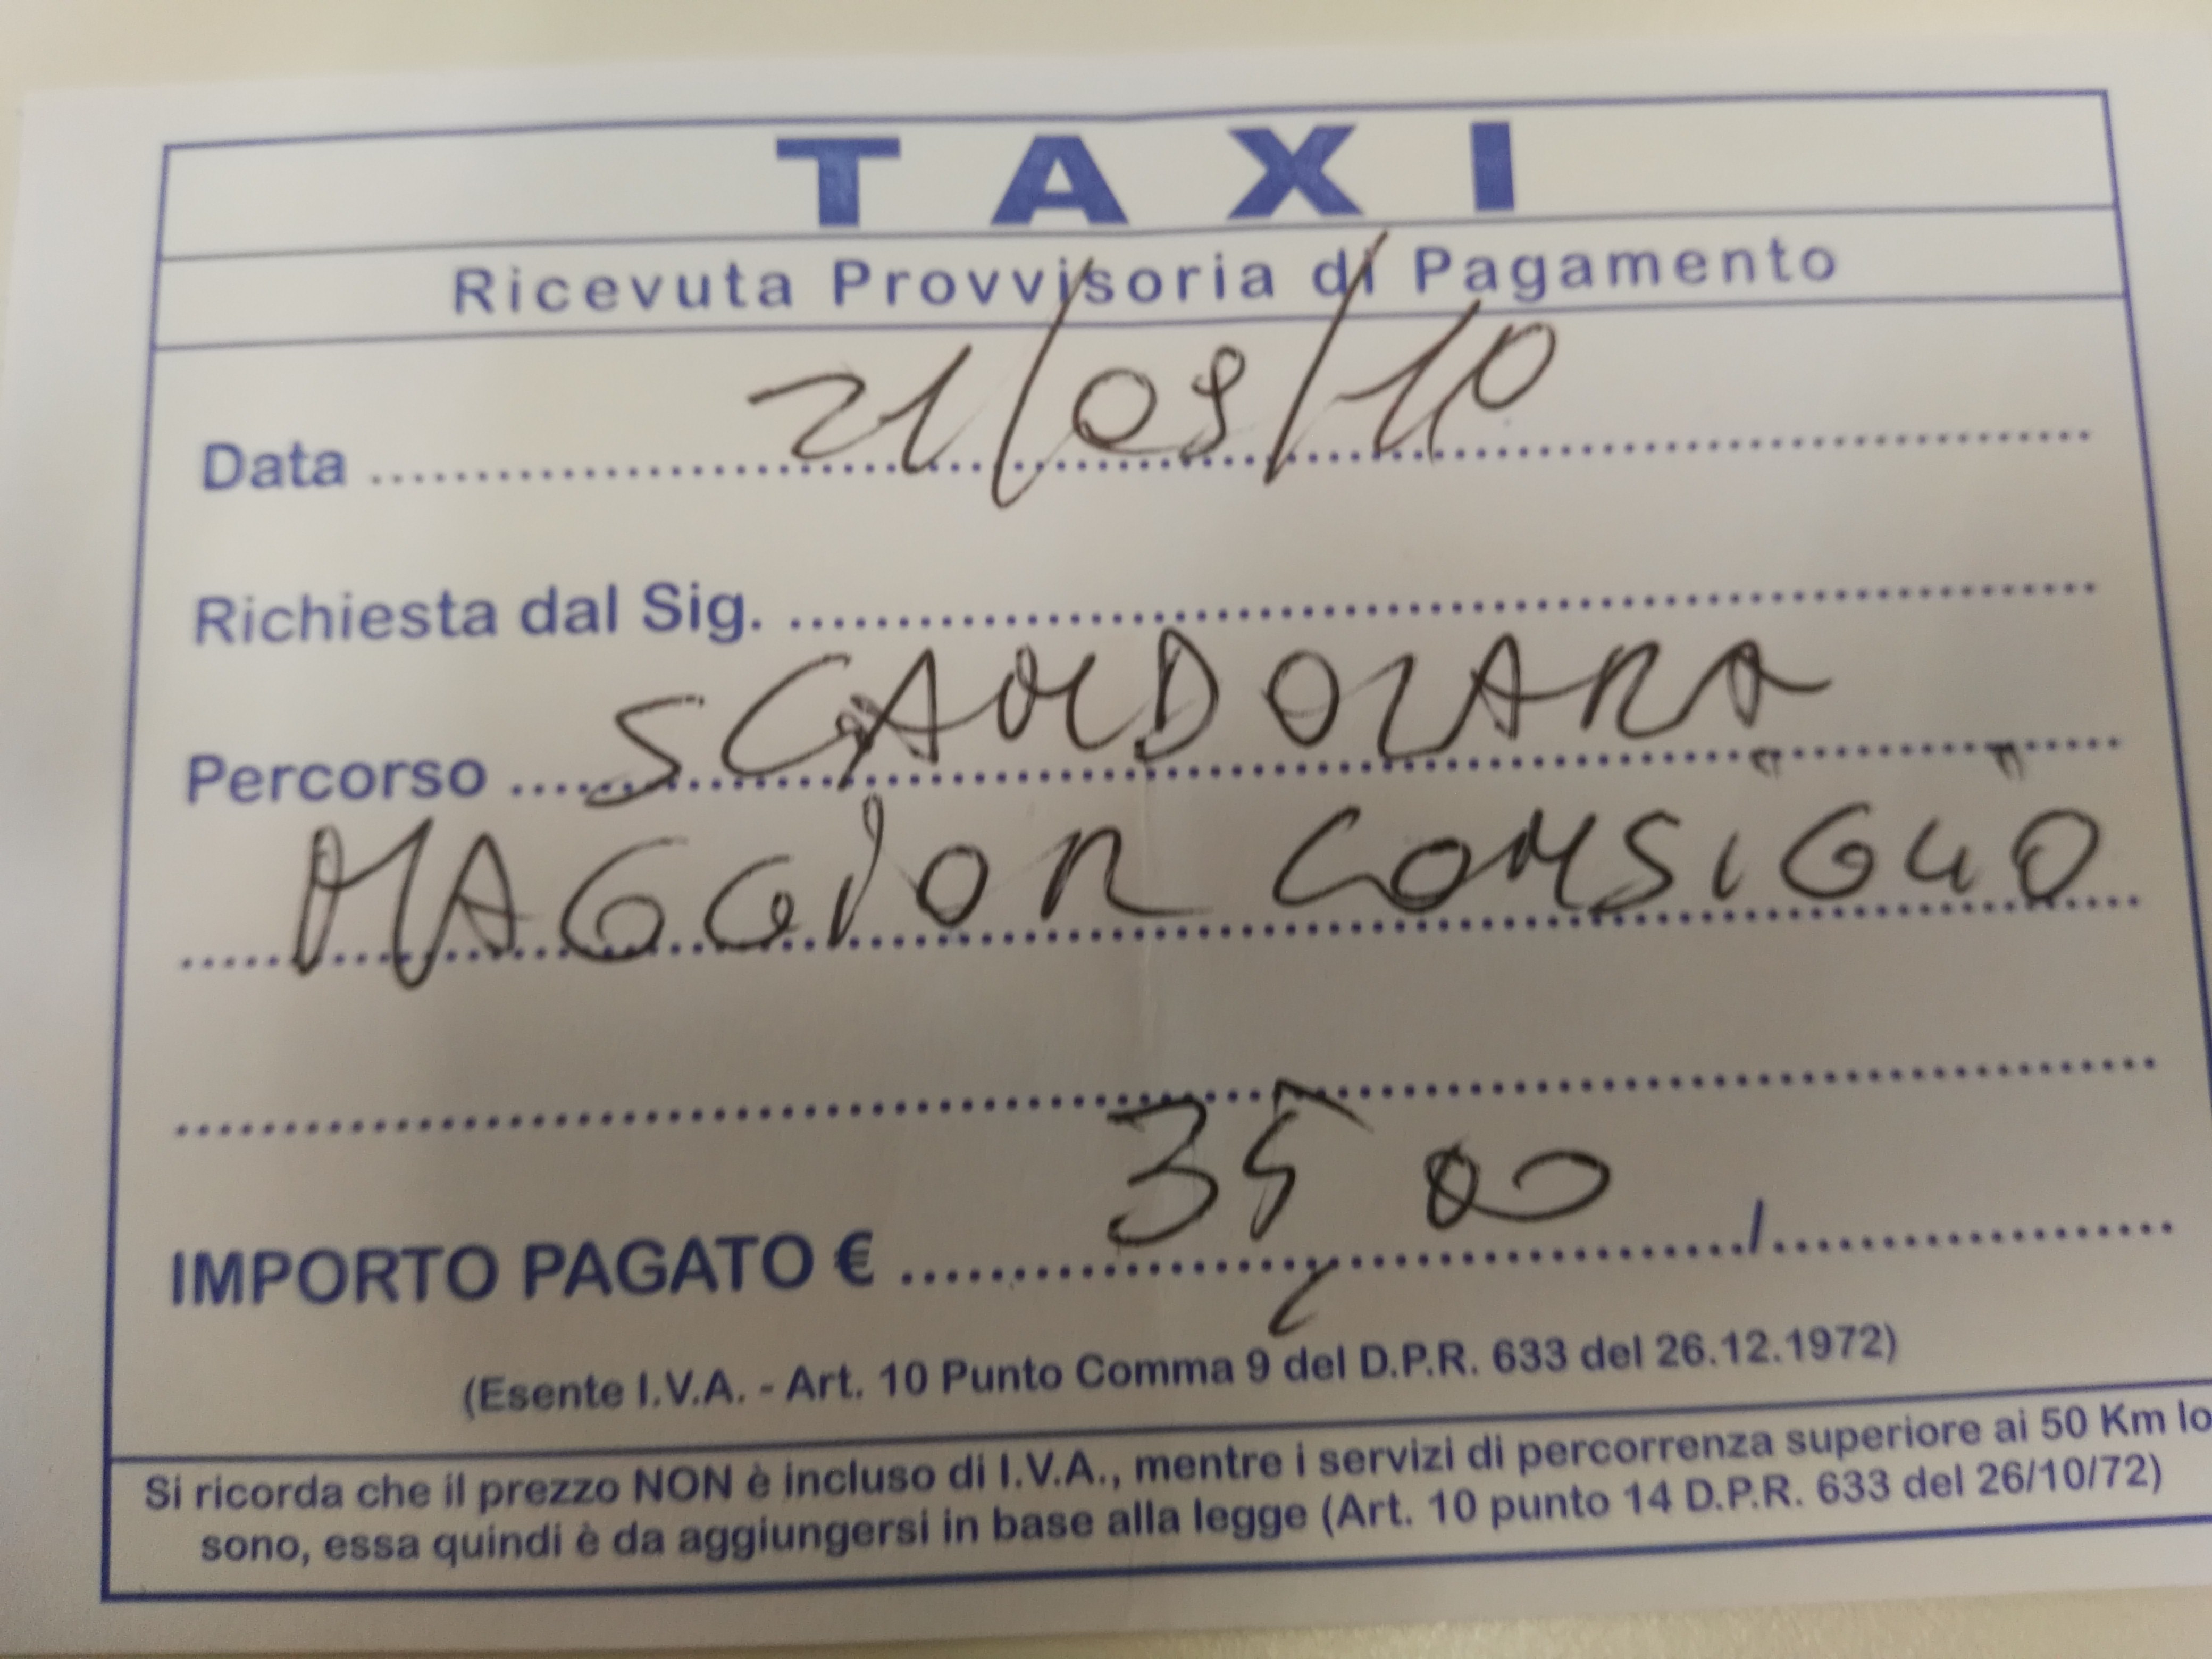 TAXI
Ricevuta Provvisoria di Pagamento
Data 21/09/10
Richiesta dal Sig.
Percorso SCANDOLARA
MAGGIOR CONSIGLIO
35,00
IMPORTO PAGATO € /
(Esente I.V.A. - Art. 10 Punto Comma 9 del D.P.R. 633 del 26.12.1972)
Si ricorda che il prezzo NON è incluso di I.V.A., mentre i servizi di percorrenza superiore ai 50 Km lo
sono, essa quindi è da aggiungersi in base alla legge (Art. 10 punto 14 D.P.R. 633 del 26/10/72)